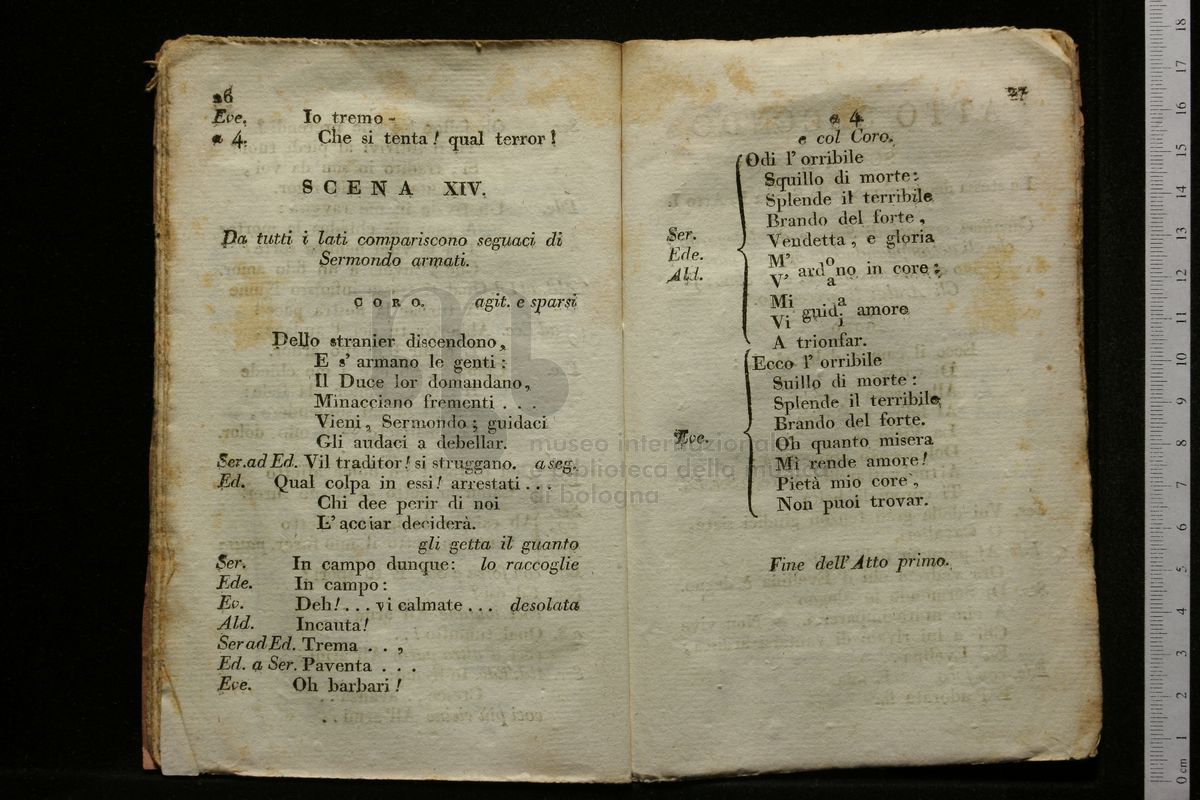 26
Eve. Io tremo -
a 4. Che si tenta! qual terror!
SCENA XIV.
Da tutti i lati compariscono seguaci di
Sermondo armati.
CORO. agit. e sparsi
Dello stranier discendono,
E s' armano le genti:
Il Duce lor domandano,
Minacciano frementi . . .
Vieni, Sermondo; guidaci
Gli audaci a debellar.
Ser. ad Ed. Vil traditor! si struggano. a seg.
Ed. Qual colpa in essi! arrestati . . .
Chi dee perir di noi
L' acciar deciderà.
gli getta il guanto
Ser. In campo dunque: lo raccoglie
Ede. In campo:
Ev. Deh! . . . vi calmate . . . desolata
Ald. Incauta!
Ser ad Ed. Trema . . ,
Ed. a Ser. Paventa . . .
Eve. Oh barbari!
27
a 4.
e col Coro.
Odi l' orribile
Squillo di morte:
Splende il terribile
Brando del forte,
Ser. Vendetta, e gloria
Ede. M' o
V' ard no in core:
Ald. a
Mi a
Vi guid i amore
A trionfar.
Ecco l' orribile
Suillo di morte:
Splende il terribile
Brando del forte.
Eve. Oh quanto misera
Mi rende amore!
Pietà mio core,
Non puoi trovar.
Fine dell' Atto primo.
museo internazionale
e biblioteca della musica
di bologna
0 cm 1 2 3 4 5 6 7 8 9 10 11 12 13 14 15 16 17 18